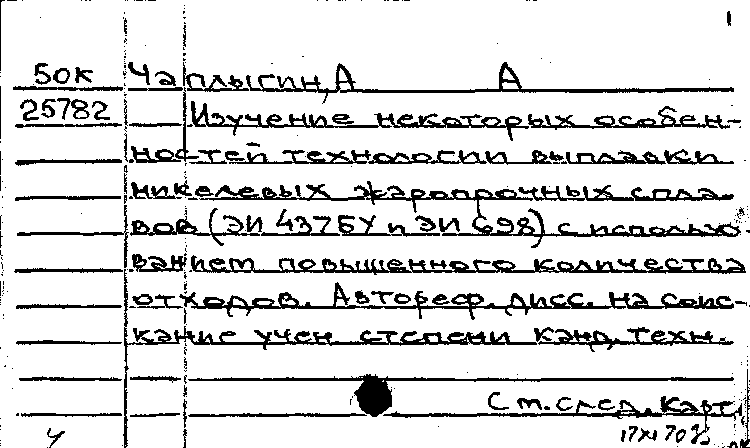 1
50К Чаплыгин, А А
25782 Изучение некоторых особен-
ностей технологии выплавки
никелевых жаропрочных спла-
вов (ЭИ 437БУ и ЭИ 698) с использо-
ванием повышенного количества
отходов. Автореф. дисс. на соис-
кание учен. степени канд. техн.
См. след. карт.